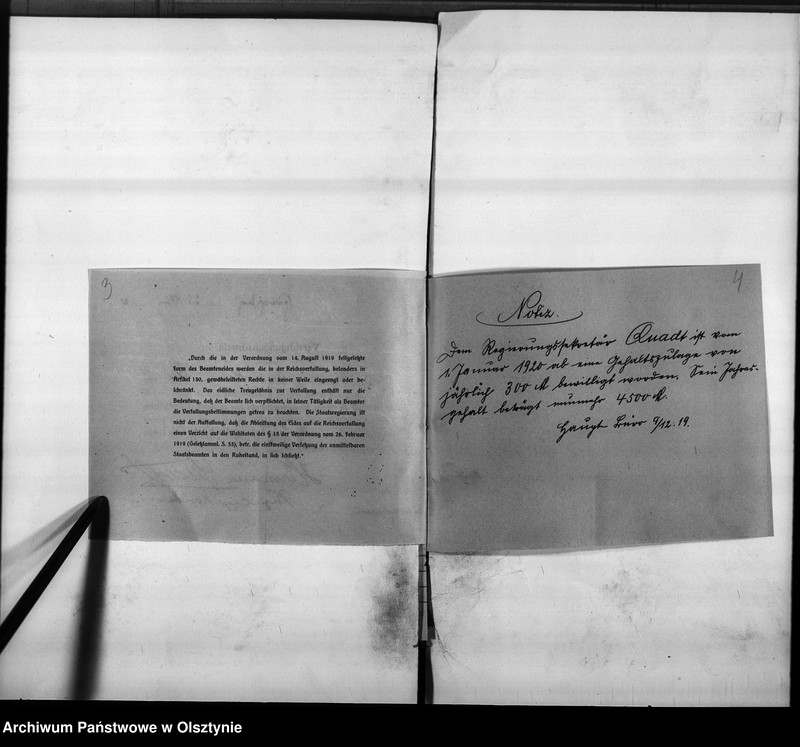 3
„Durch die in der Verordnung vom 14. August 1919 festgesetzte
Form des Beamteneides werden die in der Reichsverfassung, besonders in
Artikel 130, gewährleisteten Rechte in keiner Weise eingeengt oder be-
schränkt. Das eidliche Treugelöbnis zur Verfassung enthält nur die
Bedeutung, daß der Beamte sich verpflichtet, in seiner Tätigkeit als Beamter
die Verfassungsbestimmungen getreu zu beachten. Die Staatsregierung ist
nicht der Auffassung, daß die Ableistung des Eides auf die Reichsverfassung
einen Verzicht auf die Wohltaten des § 15 der Verordnung vom 26. Februar
1919 (Gesetzsamml. S. 33), betr. die einstweilige Versetzung der unmittelbaren
Staatsbeamten in den Ruhestand, in sich schließt."
4
Notiz.
Dem Regierungssekretär Quadt ist vom
1. Januar 1920 ab eine Gehaltszulage von
jährlich 300 M bewilligt worden. Sein Jahres-
gehalt beträgt nunmehr 4500 M.
Haupt Büro 9/12. 19.
Archiwum Państwowe w Olsztynie